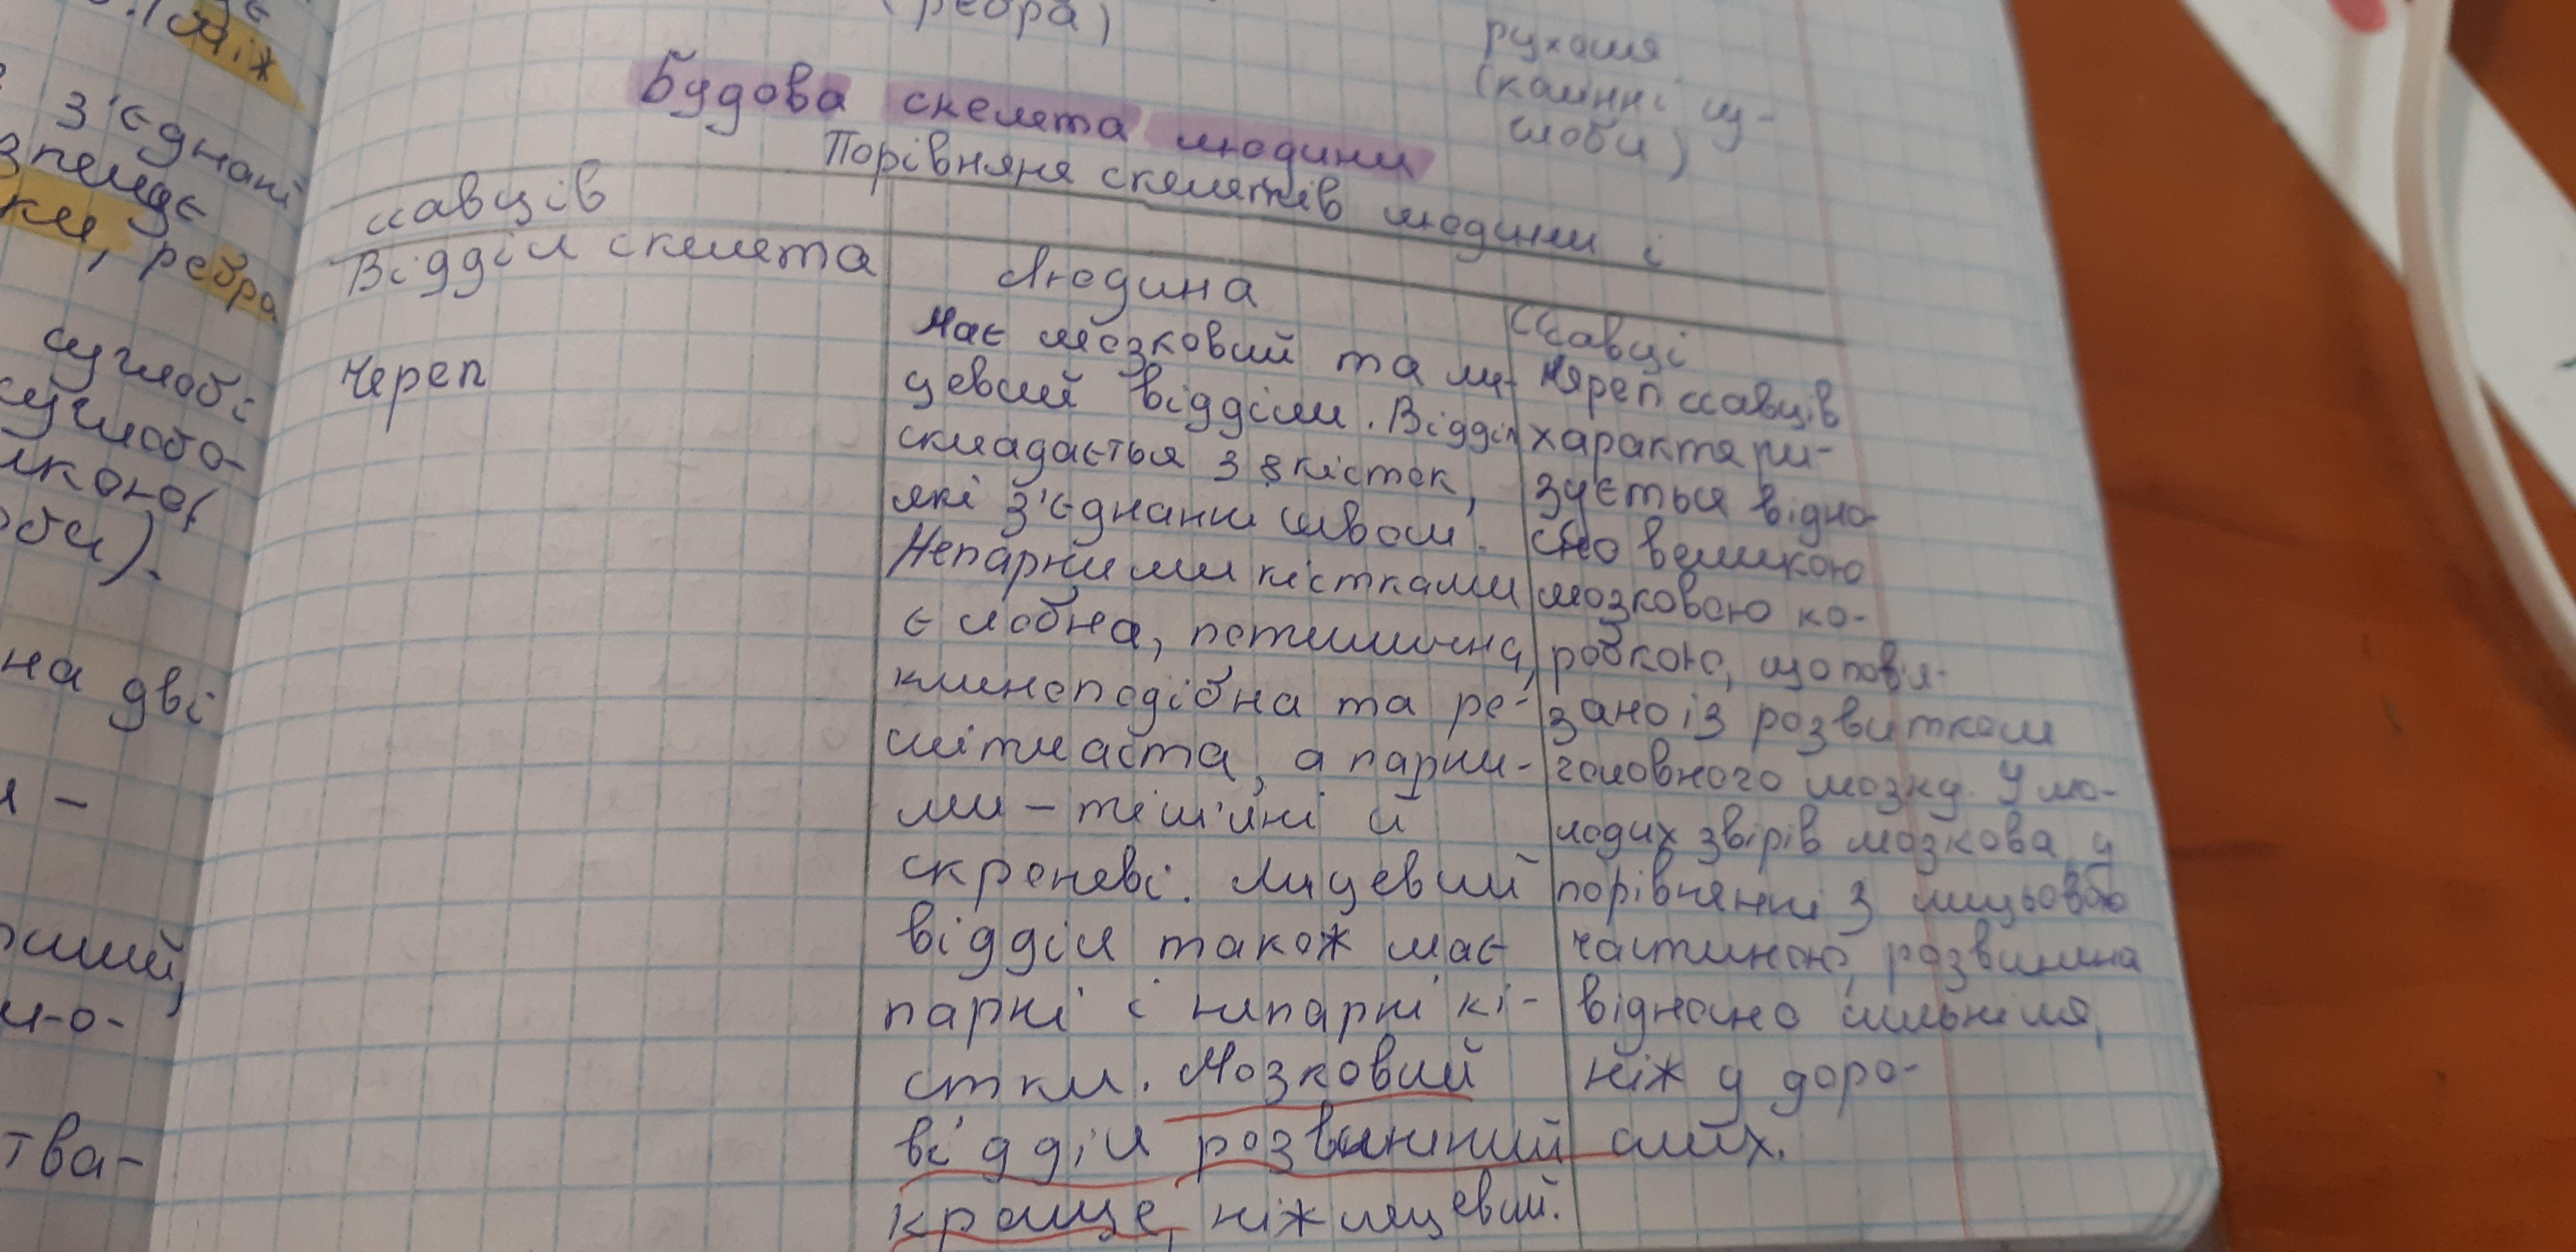 (ребра)
рухомя
(коліннi су-
глоби)
Будова скелета людини
Порівняня скелетів людини і
ссавців
Відділ скелета
Людина
Ссавці
Череп
Має мозковий та ли-
цевий відділи. Відділ
складається з 8 кісток,
які з'єднани швом.
Непарними кістками
є лобна, потилична,
клиноподібна та ре-
шітчаста, а парни-
ми – тім'яні й
скроневі. Лицевий
відділ також має
парні і непарні кі-
стки. Мозковий
відділ розвинений
краще, ніж лицевий.
Череп ссавців
характери-
зується відно-
сно великою
мозковою ко-
робкою, що пов'я-
зано із розвитком
головного мозку. У мо-
лодих звірів мозкова, у
порівнянні з лицьовою
частиною, розвинина
відносно сильніше,
ніж у доро-
слих.
них
з'єднані
ки, ребра
суглобі
на дві
тва-